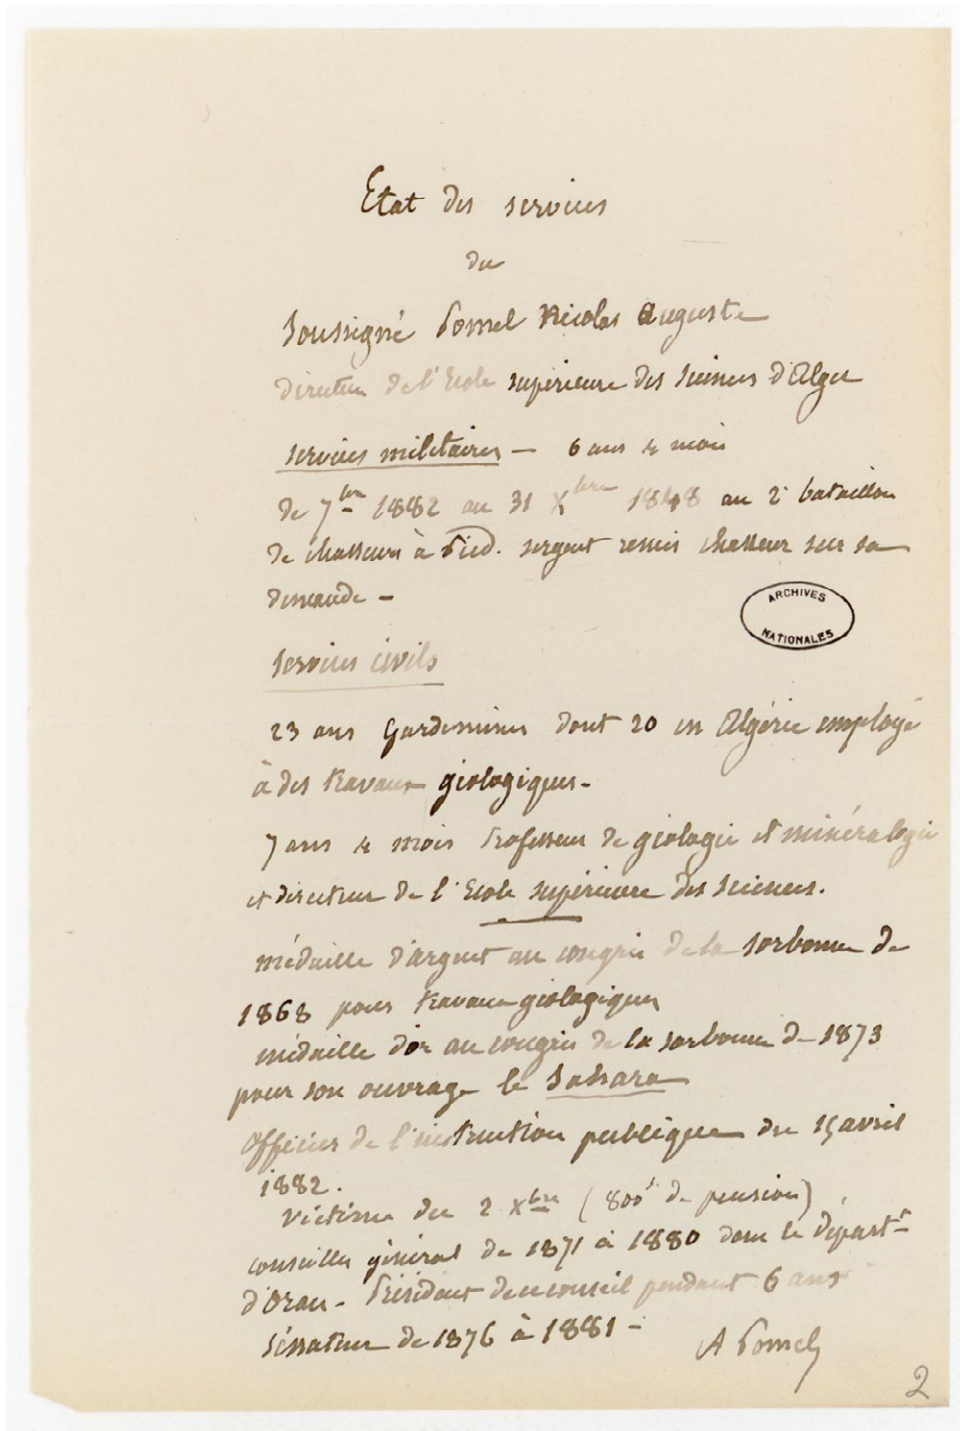 Etat des services
du
Soussigné Pomel Nicolas Auguste
directeur de l'Ecole supérieure des sciences d'Alger
services militaires — 6 ans 4 mois
de 7bre 1882 au 31 Xbre 1848 au 2e bataillon
de chasseurs à Pied. sergent remis chasseur sur sa
demande —
ARCHIVES
NATIONALES
services civils
23 ans Gardemines dont 20 en Algérie employé
à des travaux géologiques —
7 ans 4 mois Professeur de géologie et minéralogie
et directeur de l'Ecole supérieure des sciences.
médaille d'argent au congrès de la sorbonne de
1868 pour travaux géologiques
médaille d'or au congrès de la sorbonne de 1873
pour son ouvrage le Sahara
officier de l'instruction publique du 15 avril
1882.
victime du 2 Xbre (800f de pension)
conseiller général de 1871 à 1880 dans le départt
d'Oran — Président du conseil pendant 6 ans
sénateur de 1876 à 1881 —
A Pomel
2